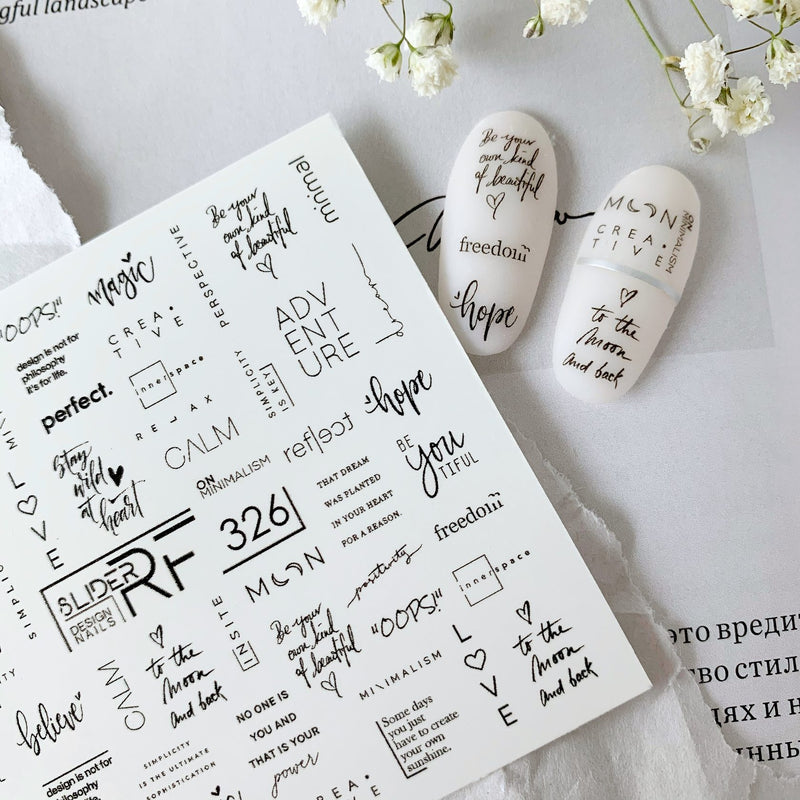 gful landscape
Be your
own kind
of beautiful
freedom
hope
MOON
CREA•
TIVE
ON
MINIMALISM
to the
moon
and back
minimal
Be your
own kind
of beautiful
PERSPECTIVE
magic
"OOPS!"
CREA•
TIVE
ADV
ENT
URE
design is not for
philosophy
it's for life.
innerspace
SIMPLICITY
IS KEY
perfect.
RELAX
hope
CALM
reflect
BE
you
TIFUL
Stay
wild
at
heart
ON
MINIMALISM
THAT DREAM
WAS PLANTED
IN YOUR HEART
FOR A REASON.
L
O
V
E
freedom
SLIDER RF
DESIGN
NAILS
326
MOON
positivity
innerspace
INSITE
Be your
own kind
of beautiful
"OOPS!"
L
O
V
E
to the
moon
and back
to the
moon
and back
CALM
MINIMALISM
believe
NO ONE IS
YOU AND
THAT IS YOUR
power
Some days
you just
have to create
your own
sunshine.
SIMPLICITY
IS THE ULTIMATE
SOPHISTICATION
design is not for
philosophy
CREA•
TIVE
это вреди
тво стил
дях и н
инны